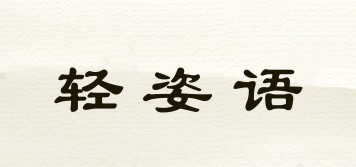 轻姿语